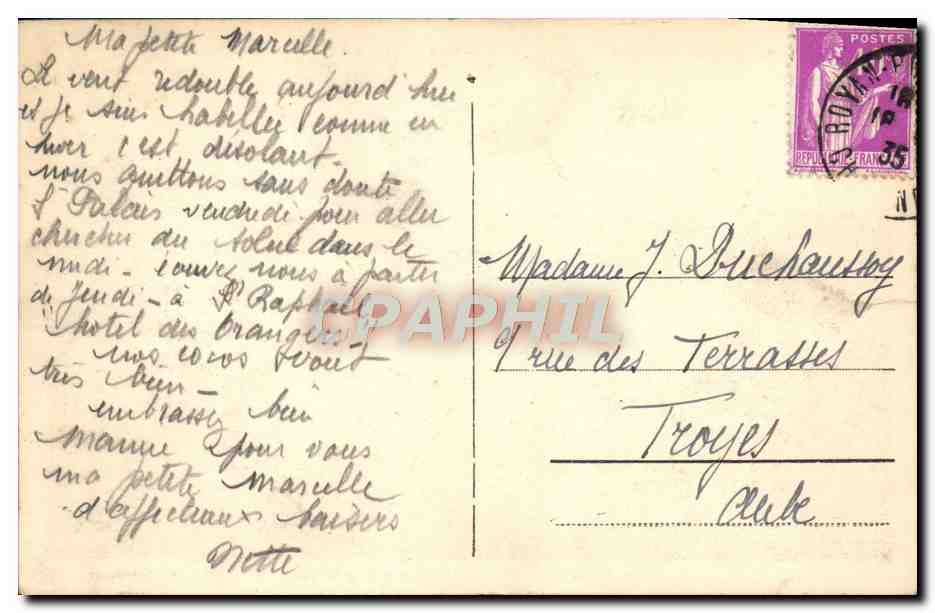 Ma petite Marcelle.
Le vent redouble aujourd'hui
et je suis habillée comme en
hiver c'est désolant.
nous quittons sans doute
St Palais vendredi pour aller
chercher du soleil dans le
midi - écrivez nous à partir
de Jeudi - à St Raphaël
hotel des Orangers -
nos cocos vont
très bien -
embrassez bien
Mamie pour vous
ma petite Marcelle
d'affectueux baisers
Nette
POSTES
REPUBLIQUE FRANC
ROYAN-P
18
10
35
Madame J. Duchaussoy
9 rue des Terrasses
Troyes
Aube
CPAPHIL